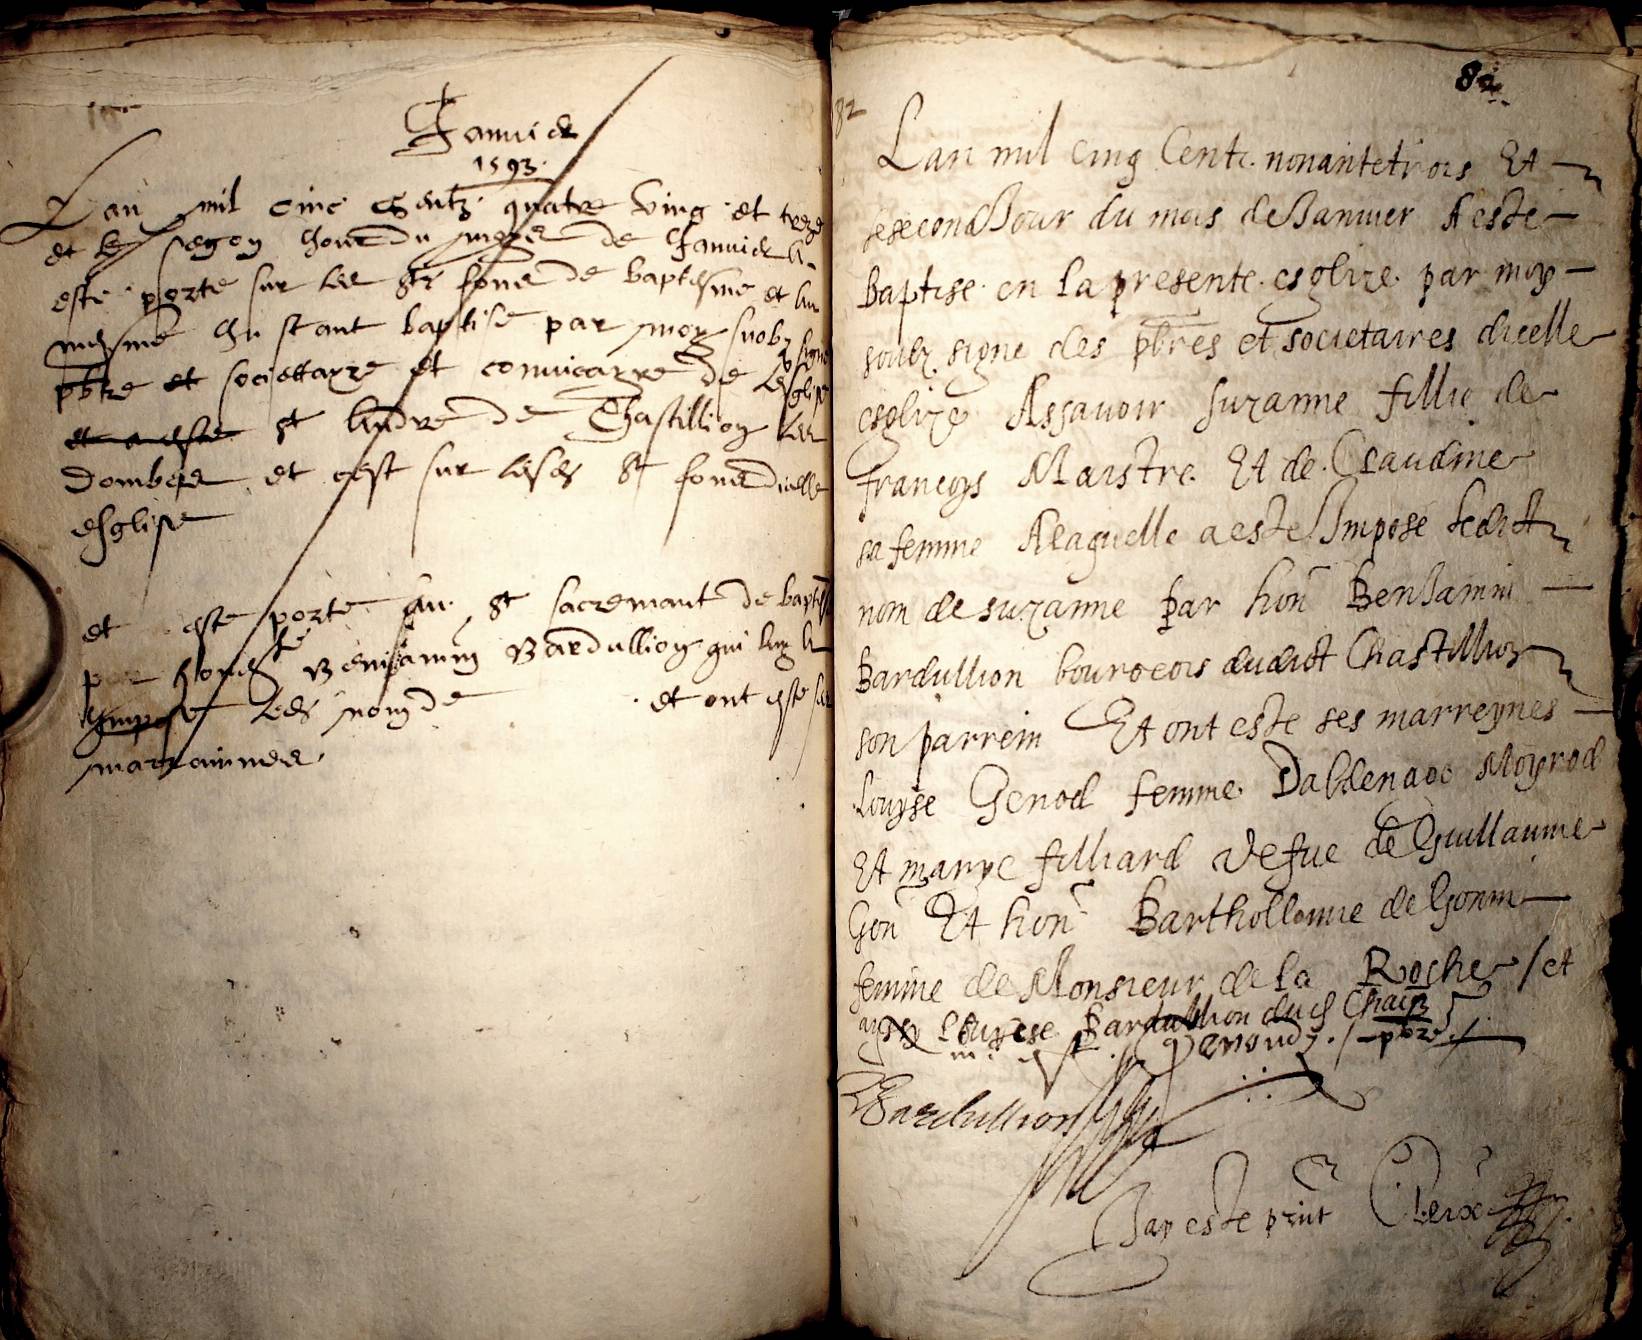 Januier
1593.
Lan mil cinc Centz quatre Ving et treze
et le segon Jour du moys de Januier a
este porte sur les stz fons de baptesme et au
mesme instant baptise par moy soubz signe
pbre et societtayre et convicayre de lesglise
et a este st Andre de Chastillion les
Dombes et cest sur lesds st fons dicelle
esglise
et este porte au st sacremant de baptes
par honeste Beniamin Bardullion qui luy a
Impose leds nom de et ont este ses
marrainnes
82
82
Lan mil cinq Centz nonantetrois Et
le second Jour du mois de Januier A este
Baptise en la presente esglize par moy
soubz signe des pbres et societaires dicelle
esglize Assauoir suzanne fillie de
francoys Maistre Et de Claudine
sa femme A laquelle a este Impose ledict
nom de suzanne par hon Beniamin
Bardullion bourgeois dudict Chastillion
son parrein Et ont este ses marreynes
Louyse Genod femme Daldenage Moyrod
Et marye filliard vefue de Guillaume
Gon Et hon Barthollomie de Gonni
femme de Monsieur de la Roche / et
aussy Louyse Bardullion dud Chaon
Perroudz pbre
Bardullion
Jay este pnt Clerx